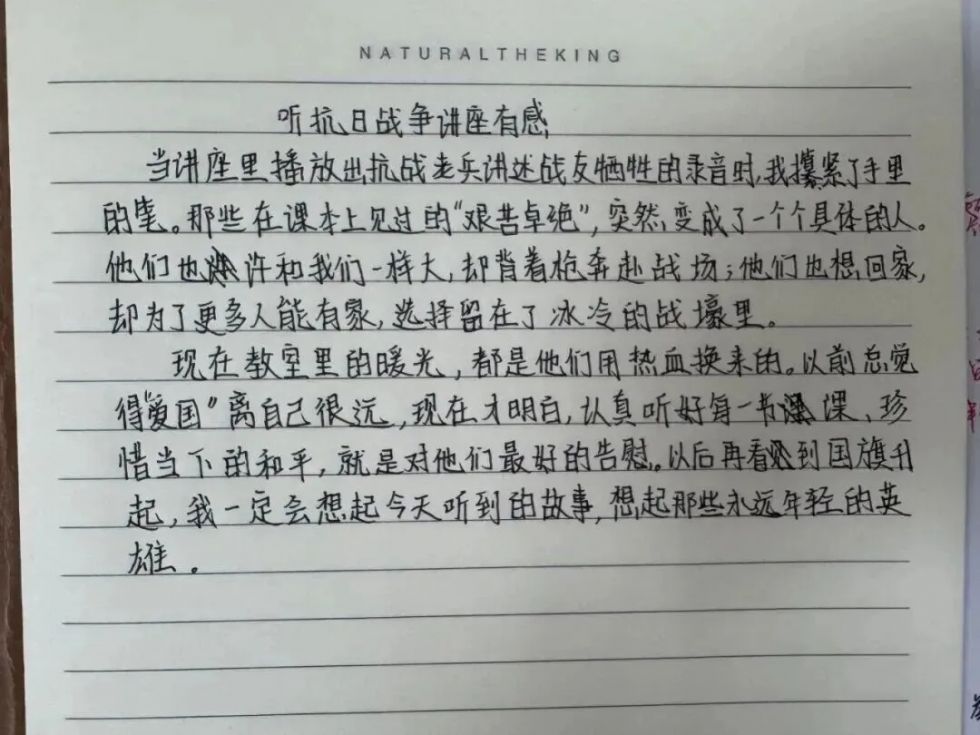 NATURALTHEKING
听抗日战争讲座有感
当讲座里播放出抗战老兵讲述战友牺牲的录音时,我攥紧了手里
的笔。那些在课本上见过的“艰苦卓绝”,突然变成了一个个具体的人。
他们也许和我们一样大,却背着枪奔赴战场;他们也想回家,
却为了更多人能有家,选择留在了冰冷的战壕里。
现在教室里的暖光,都是他们用热血换来的。以前总觉
得“爱国”离自己很远,现在才明白,认真听好每一节课、珍
惜当下的和平,就是对他们最好的告慰。以后再看到国旗升
起,我一定会想起今天听到的故事,想起那些永远年轻的英
雄。